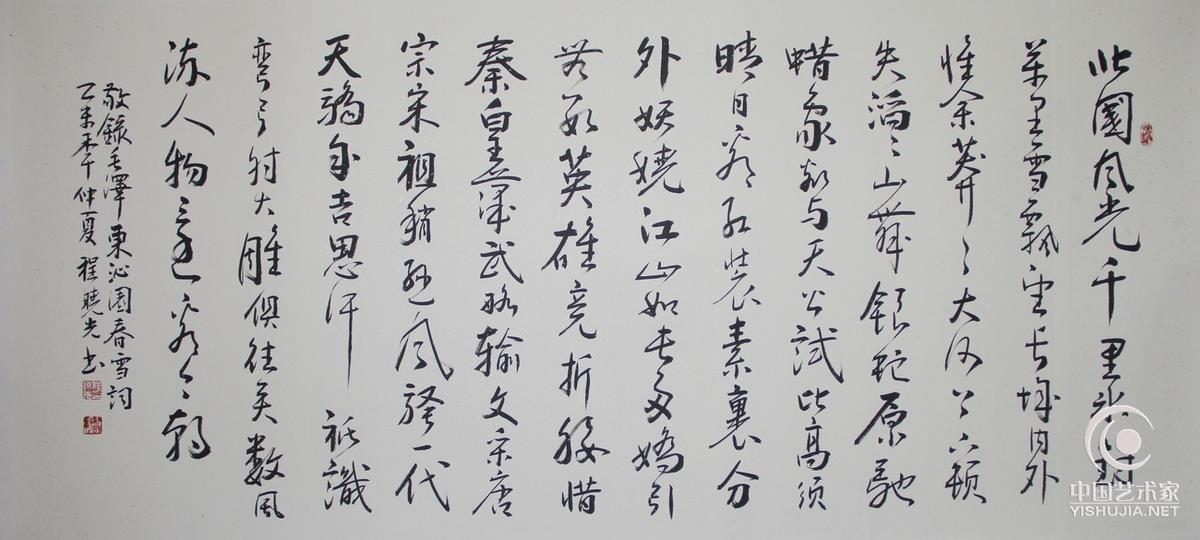 北國风光千里冰封
萬里雪飄望长城内外
惟余莽々大河上下顿
失滔々山舞银蛇原馳
蜡象欲与天公試比高须
晴日看红装素裹分
外妖娆江山如此多嬌引
無数英雄竞折腰惜
秦皇漢武略输文采唐
宗宋祖稍逊风骚一代
天骄成吉思汗 祗識
弯弓射大雕俱往矣数风
流人物還看今朝
敬錄毛澤東沁園春雪詞
乙未年仲夏 程曉光书
中国艺术家
YISHUJIA.NET